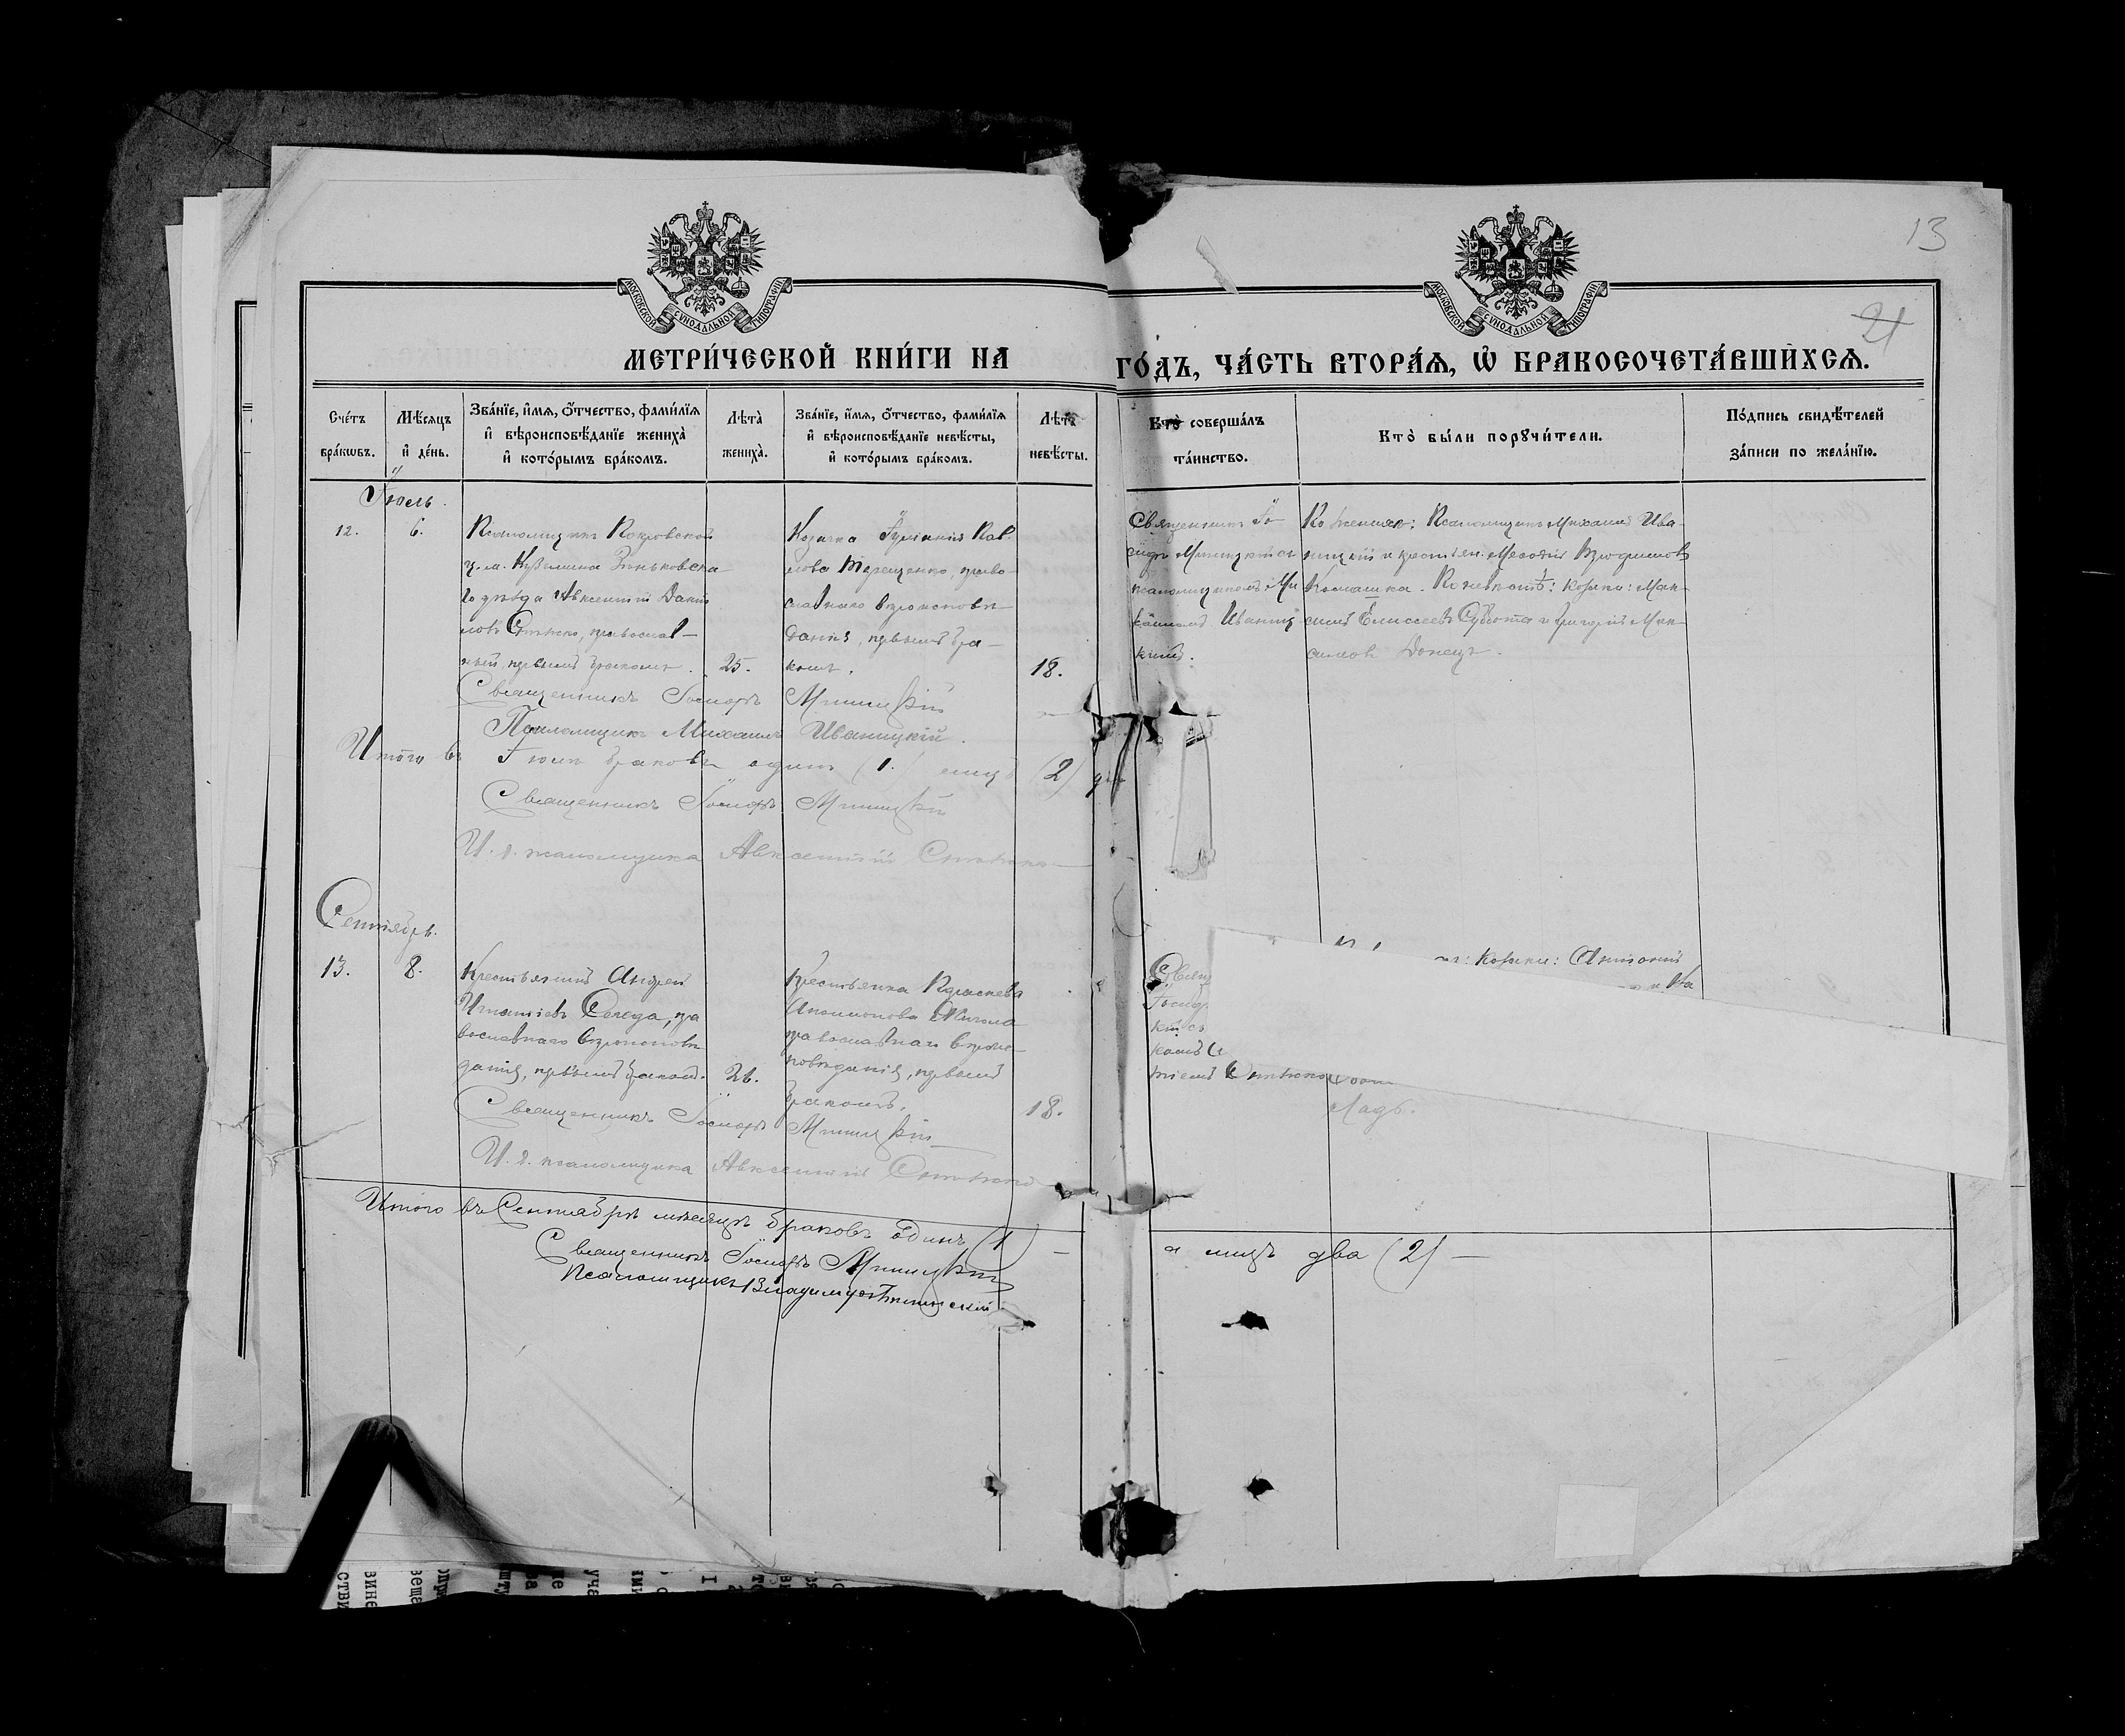 МОСКОВСКОЙ СѴНОДАЛЬНОЙ ТИПОГРАФІИ
МОСКОВСКОЙ СѴНОДАЛЬНОЙ ТИПОГРАФІИ
13
21
МЕТРИ́ЧЕСКОЙ КНИ́ГИ НА ГО́ДЪ, ЧА́СТЬ ВТОРА́Ѧ, Ѡ҆ БРАКОСОЧЕТА́ВШИХСѦ.
Сче́тъ бра́кѡвъ.
Мѣ́сѧцъ и҆ де́нь.
Зва́нїе, и҆́мѧ, ѻ҆́тчество, фами́лїѧ и҆ вѣроисповѣ́данїе жениха̀ и҆ кото́рымъ бра́комъ.
Лѣта̀ жениха̀.
Зва́нїе, и҆́мѧ, ѻ҆́тчество, фами́лїѧ и҆ вѣроисповѣ́данїе невѣ́сты, и҆ кото́рымъ бра́комъ.
Лѣта̀ невѣ́сты.
Кто̀ соверша́лъ та́инство.
Кто̀ бы́ли порꙋчи́тели.
По́дпись свидѣ́телей за́писи по жела́нїю.
Іюль.
12.
6.
Псаломщикъ Покровской
ц. м. Куземина Зѣньковска-
го уѣзда Авксентій Дани
ловъ православ-
ный, первымъ бракомъ.
25.
Козачка Іуліанія Пав-
лова Терещенко, право-
славнаго вѣроисповѣ-
данія, первымъ бра-
комъ.
18.
Священникъ Іо-
сифъ съ
псаломщикомъ Ми
хаиломъ Иваниц
кимъ.
По женихѣ: Псаломщикъ Михаилъ Ива-
ницкій и крестьян. Меѳодій
По невѣстѣ: козаки: Мак-
симъ Елисеевъ Субота и Григорій Мак-
симовъ Донецъ.
Священникъ Іосифъ
Псаломщикъ Михаилъ Иваницкій.
Итого въ Іюлѣ браковъ одинъ (1.) лицъ (2) два
Священникъ Іосифъ
И. д. псаломщика Авксентій
Сентябрь.
13.
8.
Крестьянинъ Андрей
Игнатіевъ Середа, пра
вославнаго вѣроисповѣ
данія, первымъ бракомъ.
26.
Крестьянка Параскева
православнаго вѣроис-
повѣданія, первымъ
бракомъ.
18.
Свящ
Іосиф
кій съ
комъ
козаки: Антоній
Священникъ Іосифъ
И. д. псаломщика Авксентій
Итого въ Сентябрѣ мѣсяцѣ браковъ одинъ (1) — а лицъ два (2) —
Священникъ Іосифъ
Псаломщикъ Владимиръ